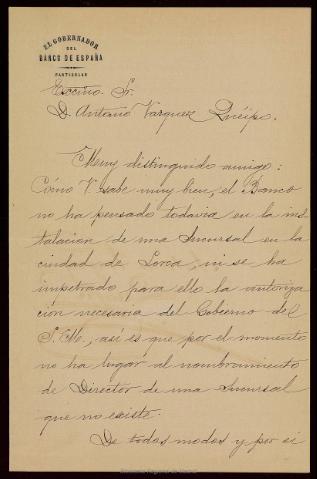 EL GOBERNADOR
DEL
BANCO DE ESPAÑA
PARTICULAR
Excmo. Sr.
D. Antonio Vazquez Quéipo.
Muy distinguido amigo:
Cómo V. sabe muy bien, el Banco
no ha pensado todavia en la ins
talacion de una Sucursal en la
ciudad de Lorca, ni se ha
impetrado para ello la autoriza
ción necesaria del Gobierno de
S. M.; así es que por el momento
no ha lugar al nombramiento
de Director de una Sucursal
que no existe.
De todos modos y por si